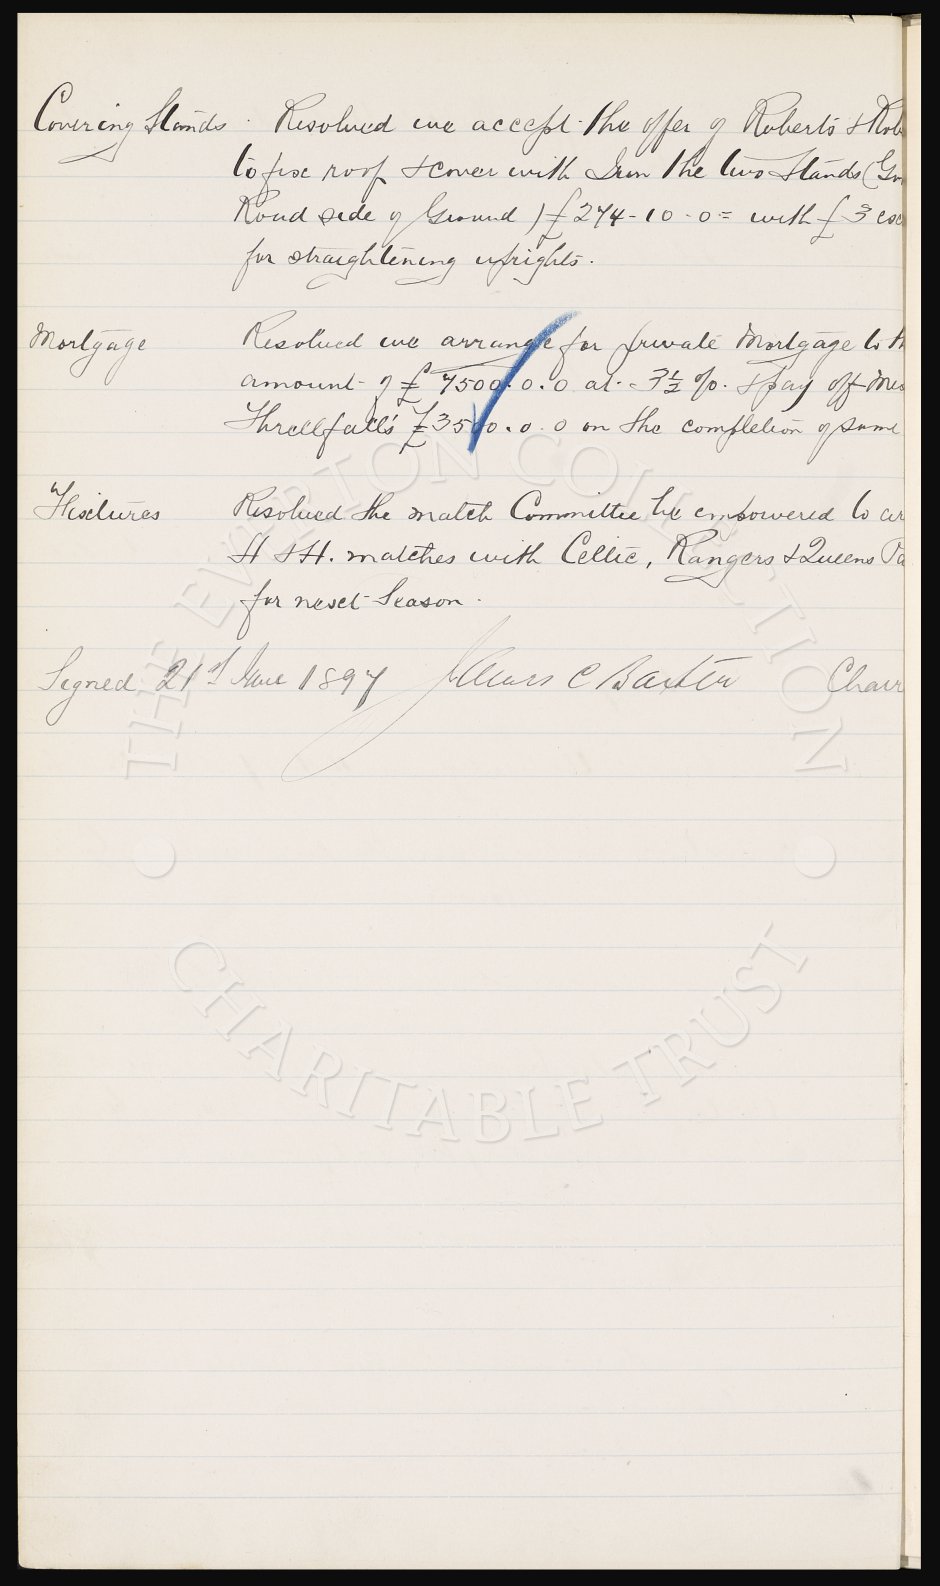 Covering Stands. Resolved we accept the offer of Roberts & Rob
to fix roof & cover with Iron the two Stands (Go
Road side of Ground) £274-10-0 = with £3
for straightening uprights.
Mortgage Resolved we arrange for private Mortgage to th
amount of £7500.0.0 at 3½ % & pay off
Threlfall's £3500.0.0 on the completion of same
Fixtures Resolved the match Committee be empowered to ar
H & H. matches with Celtic, Rangers & Queens Pa
for next Season.
Signed 21st June 1897 James C Baxter Chair
THE EVERTON COLLECTION
CHARITABLE TRUST